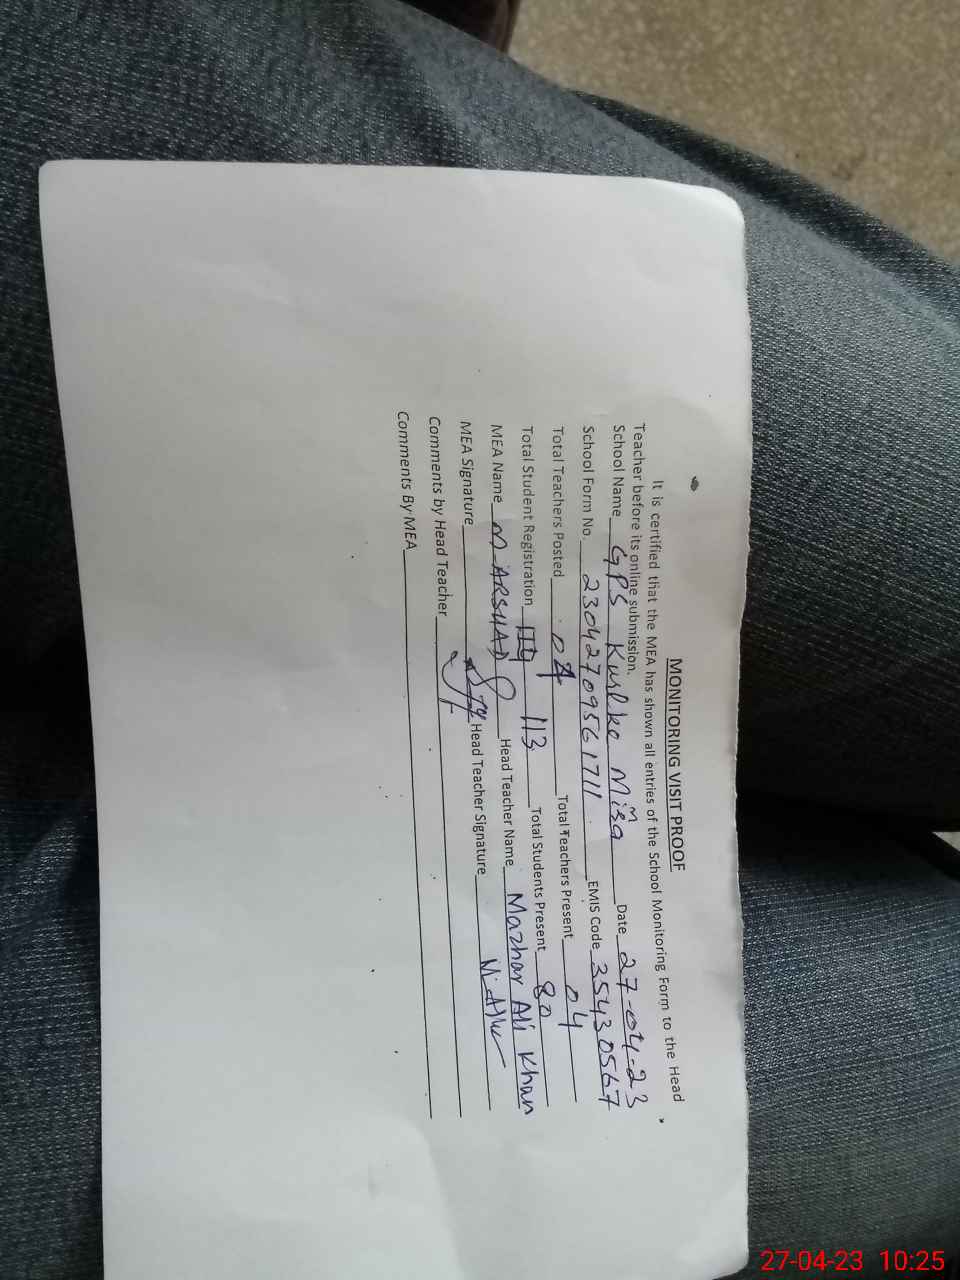 MONITORING VISIT PROOF
It is certified that the MEA has shown all entries of the School Monitoring Form to the Head
Teacher before its online submission.
School Name GPS Date 27-04-23
School Form No. 23042709561711 EMIS Code 35430567
Total Teachers Posted 04 Total Teachers Present 04
Total Student Registration 113 Total Students Present 80
MEA Name M-ARSHAD Head Teacher Name Mazhar Ali Khan
MEA Signature Head Teacher Signature
Comments by Head Teacher
Comments By MEA
27-04-23 10:25